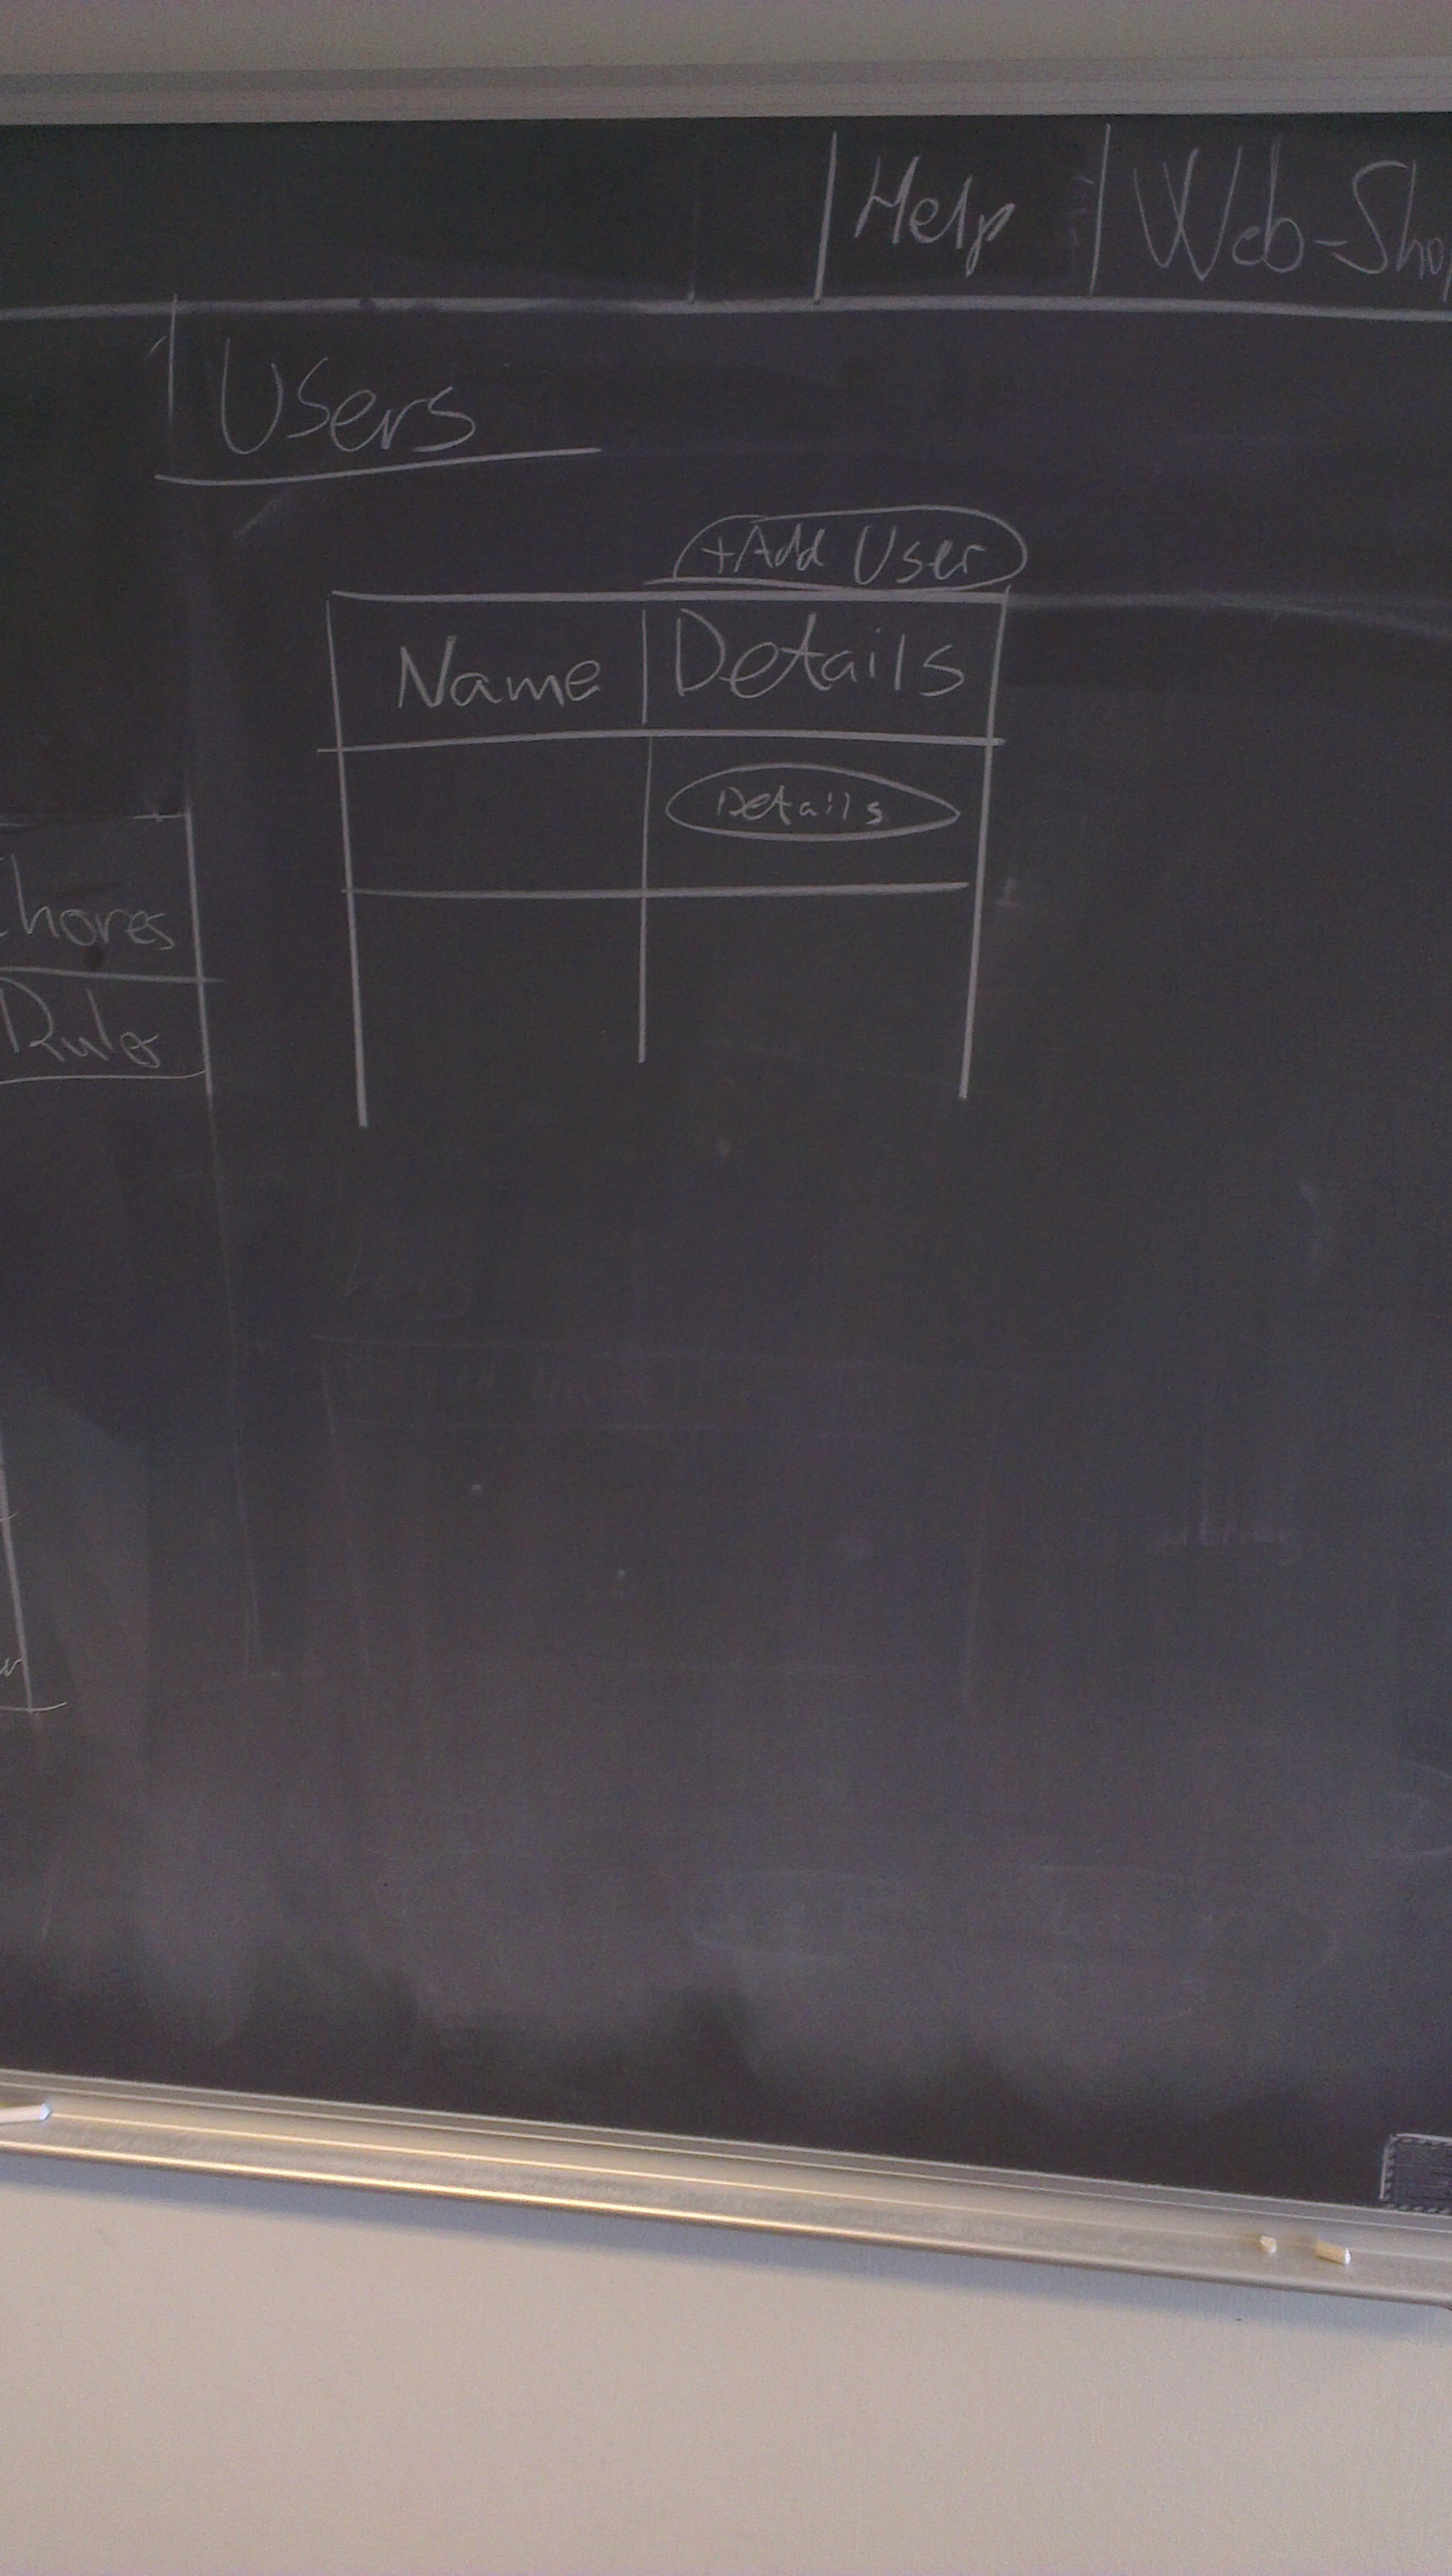 Help Web-Shop
Users
+Add User
Name Details
Details
Chores
Rules